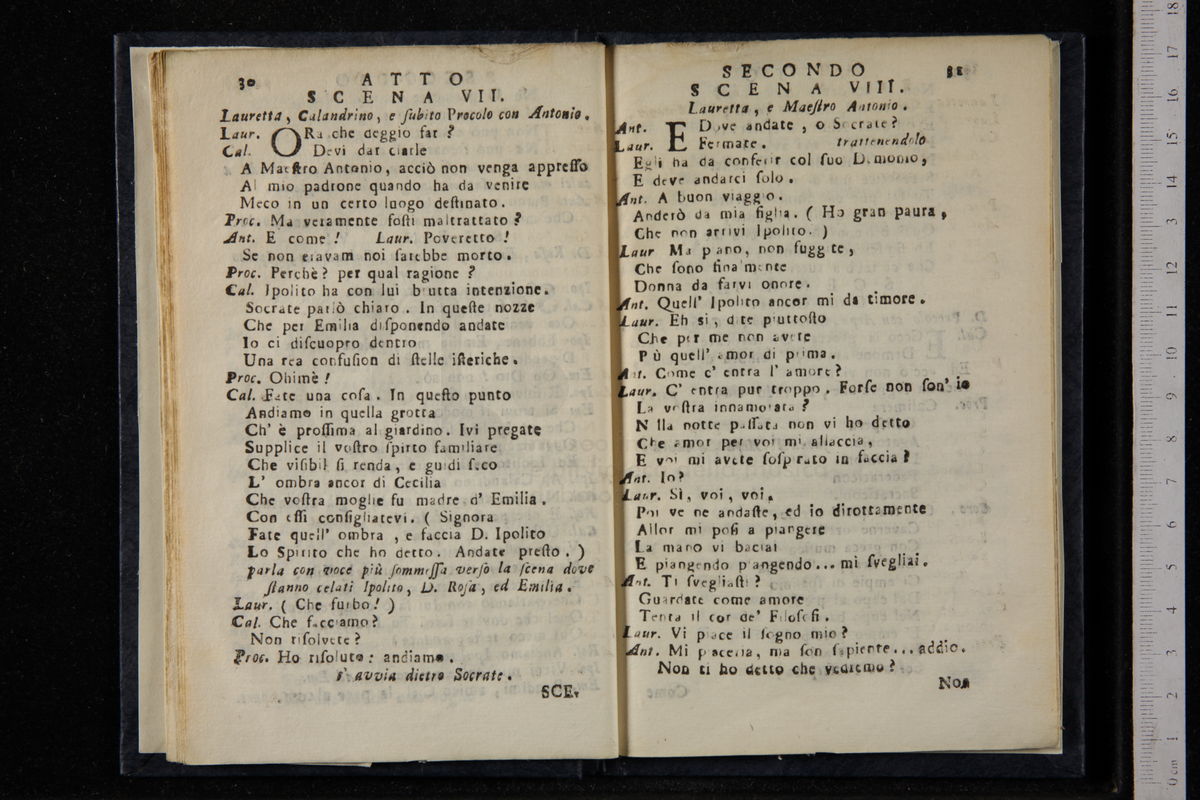 30 ATTO
SCENA VII.
Lauretta, Calandrino, e ſubito Procolo con Antonio.
Laur. ORa che deggio far ?
Cal. Devi dar ciarle
A Maeſtro Antonio, acciò non venga appreſſo
Al mio padrone quando ha da venire
Meco in un certo luogo deſtinato.
Proc. Ma veramente foſti maltrattato ?
Ant. E come ! Laur. Poveretto !
Se non eravam noi ſarebbe morto.
Proc. Perchè ? per qual ragione ?
Cal. Ipolito ha con lui brutta intenzione.
Socrate parlò chiaro. In queſte nozze
Che per Emilia diſponendo andate
Io ci diſcuopro dentro
Una rea confuſion di ſtelle iſteriche.
Proc. Ohimè !
Cal. Fate una coſa. In queſto punto
Andiamo in quella grotta
Ch' è proſſima al giardino. Ivi pregate
Supplice il voſtro ſpirto familiare
Che viſibil ſi renda, e guidi ſeco
L' ombra ancor di Cecilia
Che voſtra moglie fu madre d' Emilia.
Con eſſi conſigliatevi. ( Signora
Fate quell' ombra, e faccia D. Ipolito
Lo Spirito che ho detto. Andate preſto. )
parla con voce più ſommeſſa verſo la ſcena dove
ſtanno celati Ipolito, D. Roſa, ed Emilia.
Laur. ( Che furbo ! )
Cal. Che facciamo?
Non riſolvete ?
Proc. Ho riſoluto : andiamo.
s' avvia dietro Socrate.
SCE-
SECONDO 31
SCENA VIII.
Lauretta, e Maeſtro Antonio.
Ant. E Dove andate, o Socrate ?
Laur. Fermate. trattenendolo
Egli ha da conferir col ſuo Demonio,
E deve andarci ſolo.
Ant. A buon viaggio.
Anderò da mia figlia. ( Ho gran paura,
Che non arrivi Ipolito. )
Laur Ma piano, non fuggite,
Che ſono finalmente
Donna da farvi onore.
Ant. Quell' Ipolito ancor mi da timore.
Laur. Eh si, dite piuttoſto
Che per me non avete
Più quell' amor di prima.
Ant. Come c' entra l' amore ?
Laur. C' entra pur troppo. Forſe non ſon' io
La voſtra innamorata ?
Nella notte paſſata non vi ho detto
Che amor per voi mi allaccia,
E voi mi avete ſoſpirato in faccia ?
Ant. Io ?
Laur. Sì, voi, voi.
Poi ve ne andaſte, ed io dirottamente
Allor mi poſi a piangere
La mano vi baciai
E piangendo piangendo... mi ſvegliai.
Ant. Ti ſvegliaſti ?
Guardate come amore
Tenta il cor de' Filoſofi.
Laur. Vi piace il ſogno mio ?
Ant. Mi piaceria, ma ſon ſapiente... addio.
Non ti ho detto che vedremo ?
Non